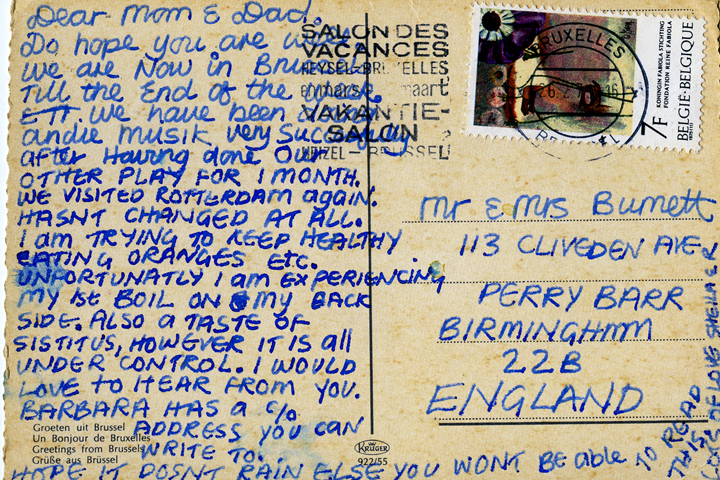 Dear Mom & Dad.
Do hope you are
we are Now in
Till the End of the
ETT. we have been doing
andie musik very Successfully
after Having done Our
OTHER PLAY FOR 1 MONTH.
WE VISITED ROTTERDAM again.
HASNT CHANGED AT ALL.
I am TRYING TO KEEP HEALTHY
EATING ORANGES ETC.
UNFORTUNATLY I am EXPERIENCING
MY 1st BOIL ON MY BACK
SIDE. ALSO A TASTE OF
SISTITUS, HOWEVER IT IS all
UNDER CONTROL. I WOULD
LOVE TO HEAR FROM YOU.
BARBARA HAS A C/O
ADDRESS YOU CAN
WRITE TO.
HOPE IT DOSNT RAIN ELSE YOU WONT BE able TO READ
THIS.
LOTS OF LOVE SHEILA & R
Groeten uit Brussel
Un Bonjour de Bruxelles
Greetings from Brussels
Grüße aus Brüssel
SALON DES
VACANCES
HEYSEL-BRUXELLES
maart
VAKANTIE-
SALON
HEIZEL-BRUSSEL
BRUXELLES
KONINGIN FABIOLA STICHTING
FONDATION REINE FABIOLA
7F
BELGIË-BELGIQUE
Mr & Mrs Burnett
113 CLIVEDEN AVE
PERRY BARR
BIRMINGHAM
22B
ENGLAND
KRÜGER
922/55